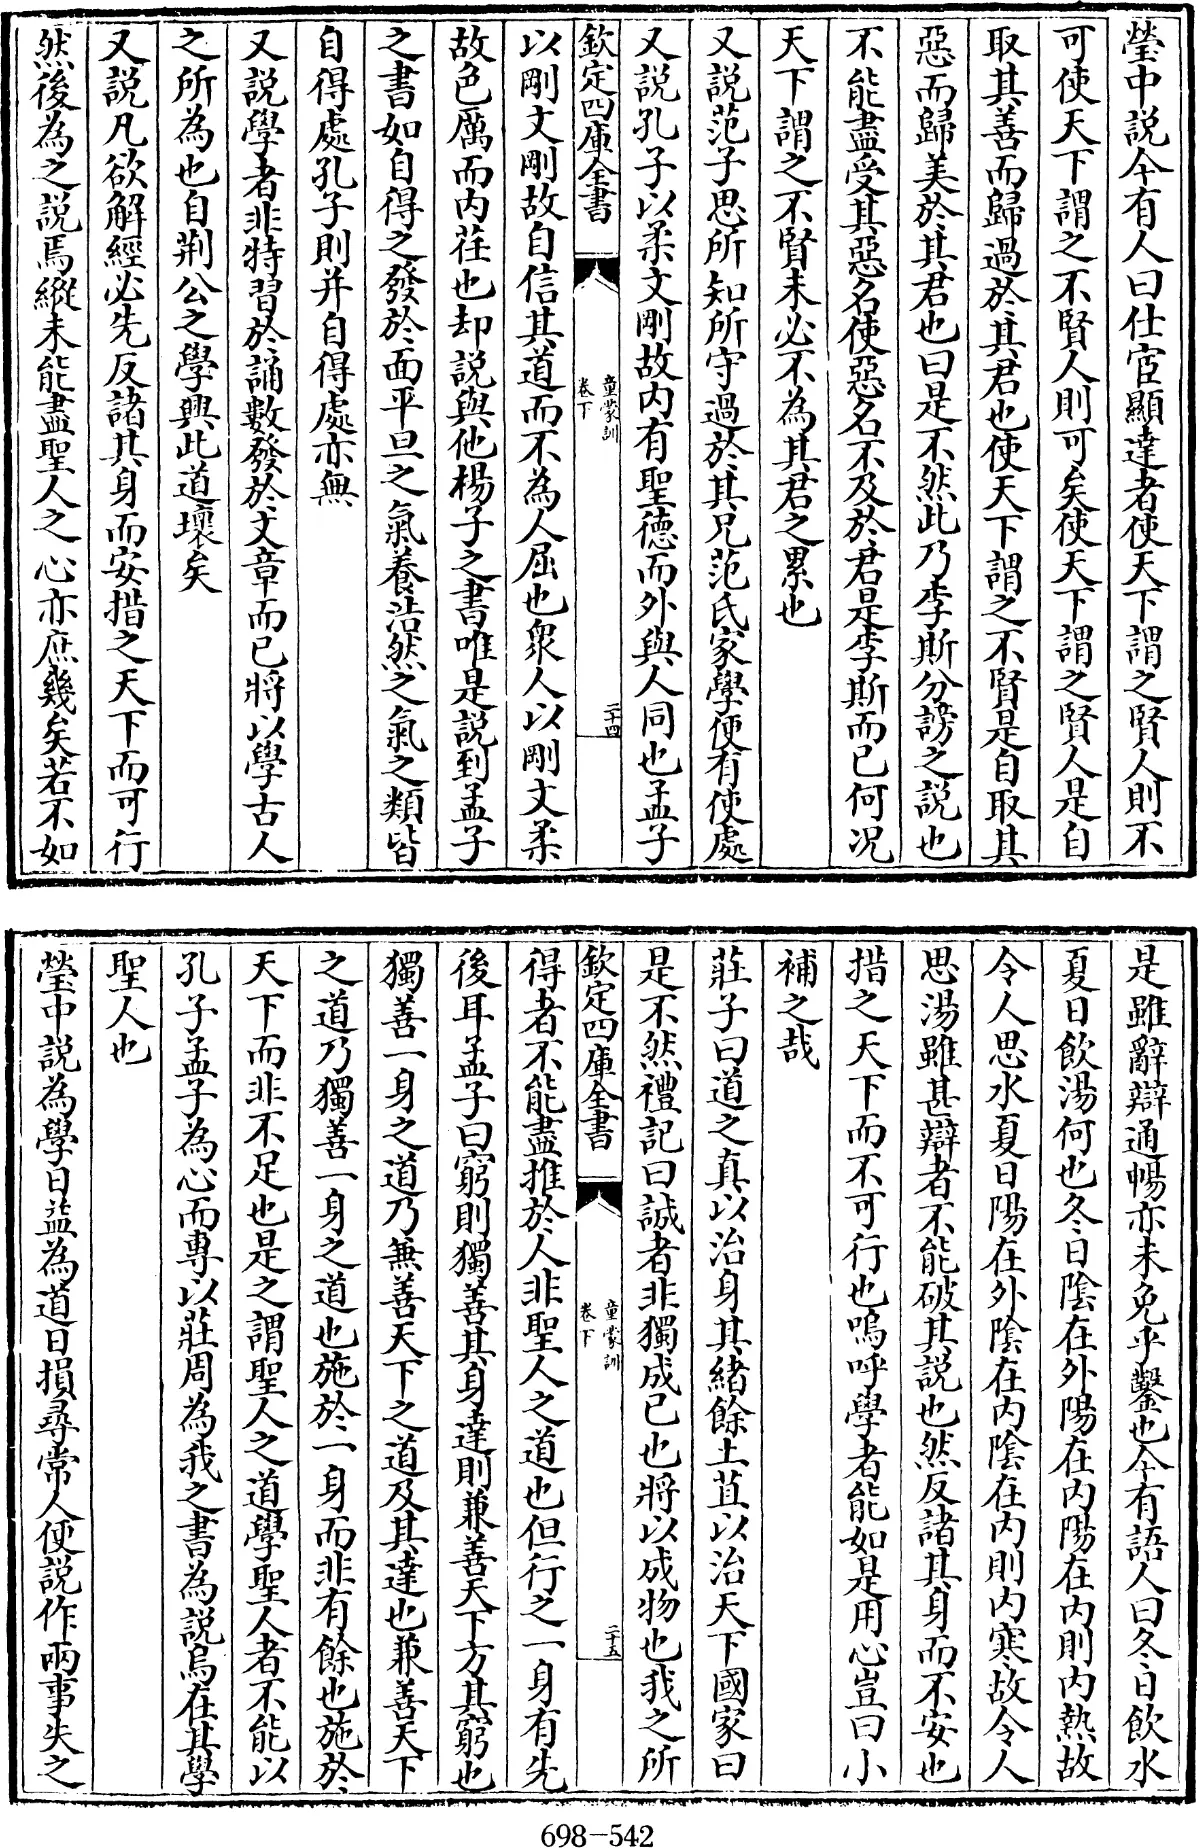 瑩中説今有人曰仕宦顯達者使天下謂之賢人則不
可使天下謂之不賢人則可矣使天下謂之賢人是自
取其善而歸過於其君也使天下謂之不賢是自取其
惡而歸美於其君也曰是不然此乃李斯分謗之説也
不能盡受其惡名使惡名不及於君是李斯而已何况
天下謂之不賢未必不為其君之累也
又説范子思所知所守過於其兄范氏家學便有使處
又説孔子以柔文剛故内有聖德而外與人同也孟子
欽定四庫全書
童蒙訓
卷下
二十四
以剛文剛故自信其道而不為人屈也衆人以剛文柔
故色厲而内荏也却説與他楊子之書唯是説到孟子
之書如自得之發於面平旦之氣養浩然之氣之類皆
自得處孔子則并自得處亦無
又説學者非特習於誦數發於文章而已將以學古人
之所為也自荆公之學興此道壞矣
又説凡欲解經必先反諸其身而安措之天下而可行
然後為之説焉縱未能盡聖人之心亦庶幾矣若不如
是雖辭辯通暢亦未免乎鑿也今有語人曰冬日飲水
夏日飲湯何也冬日陰在外陽在内陽在内則内熱故
令人思水夏日陽在外陰在内陰在内則内寒故令人
思湯雖甚辯者不能破其説也然反諸其身而不安也
措之天下而不可行也嗚呼學者能如是用心豈曰小
補之哉
莊子曰道之真以治身其緒餘土苴以治天下國家曰
是不然禮記曰誠者非獨成己也將以成物也我之所
欽定四庫全書
童蒙訓
卷下
二十五
得者不能盡推於人非聖人之道也但行之一身有先
後耳孟子曰窮則獨善其身達則兼善天下方其窮也
獨善一身之道乃兼善天下之道及其達也兼善天下
之道乃獨善一身之道也施於一身而非有餘也施於
天下而非不足也是之謂聖人之道學聖人者不能以
孔子孟子為心而專以莊周為我之書為説烏在其學
聖人也
瑩中説為學日益為道日損尋常人便説作兩事失之
698-542